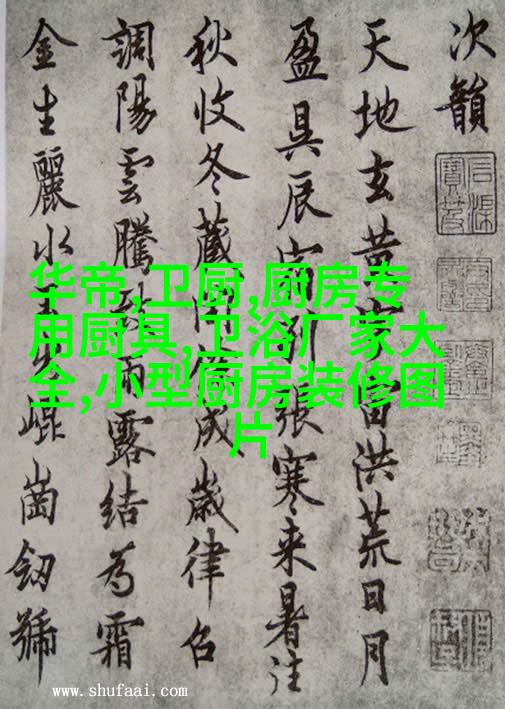 次韻
天地玄黃宇宙洪荒日月
盈昃辰宿列張寒来暑往
秋收冬藏閏餘成歲律召
調陽雲騰致雨露結為霜
金生麗水玉出崐崗劒號
华帝,卫厨,厨房专
用厨具,卫浴厂家大
全,小型厨房装修图
片
www.shufaai.com